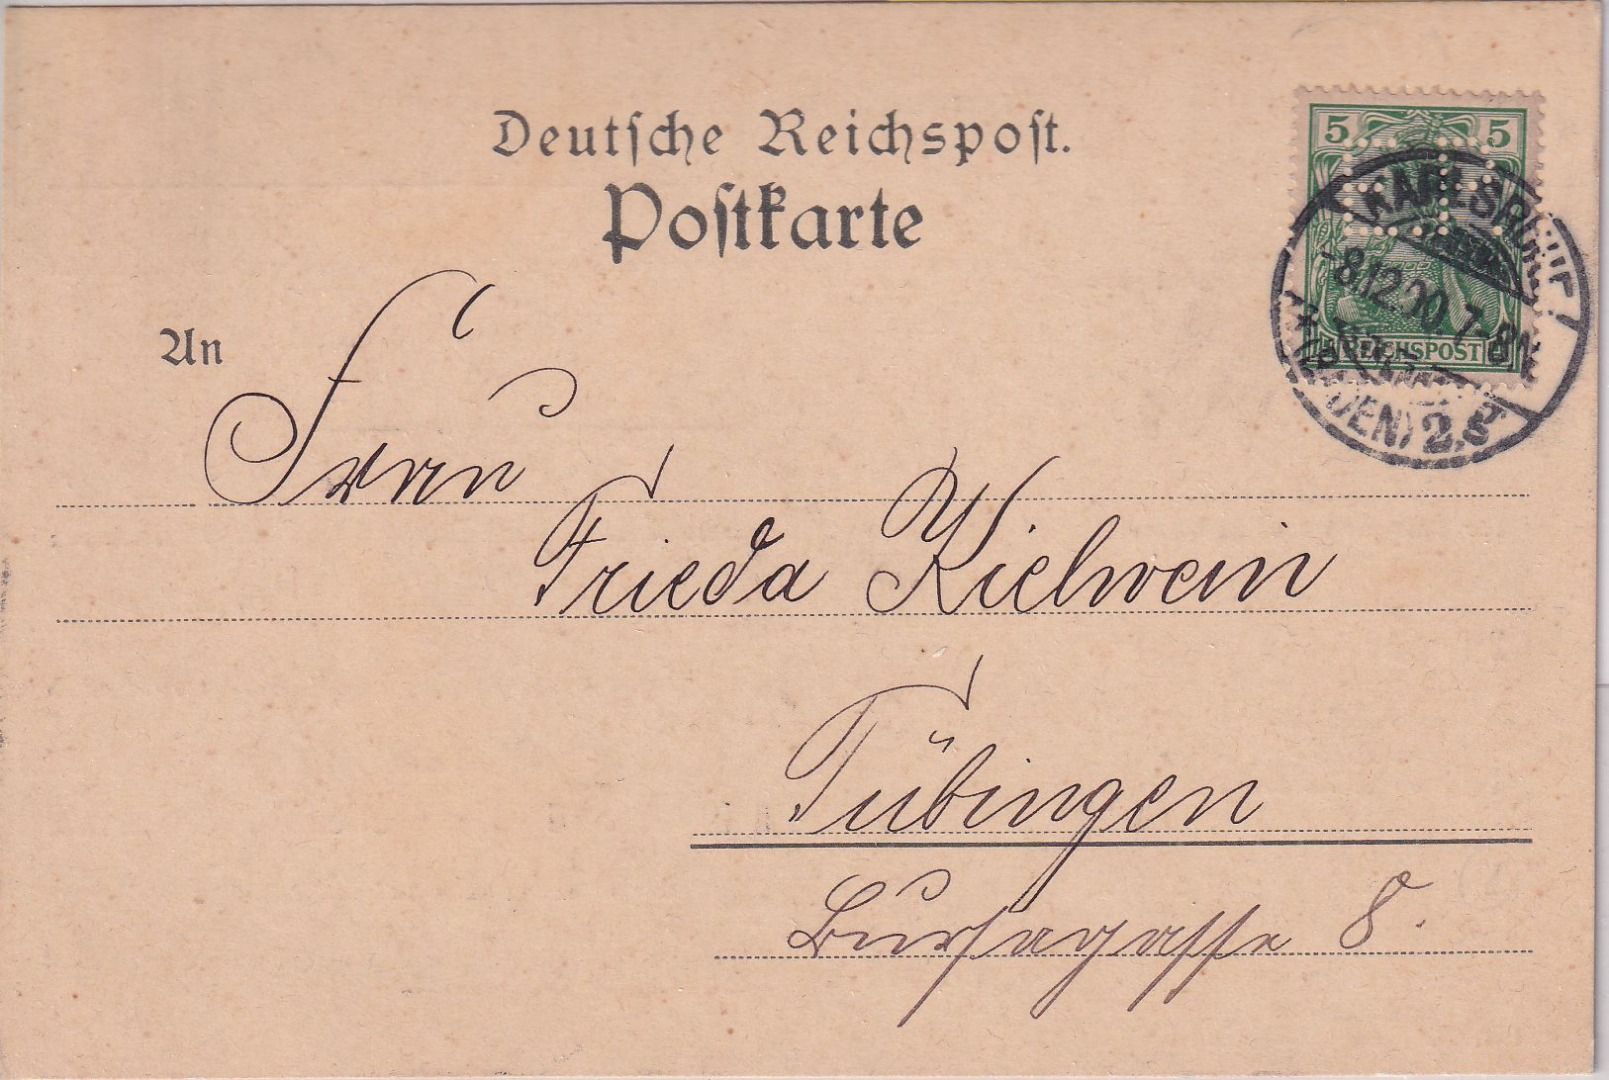 Deutsche Reichspost.
Postkarte
5 5
KARLSRUHE
-8.12.00.7-8N.
(BADEN) 2.g
REICHSPOST
An
Frau
Frieda Kielwein
Tübingen
Bursagasse 8.